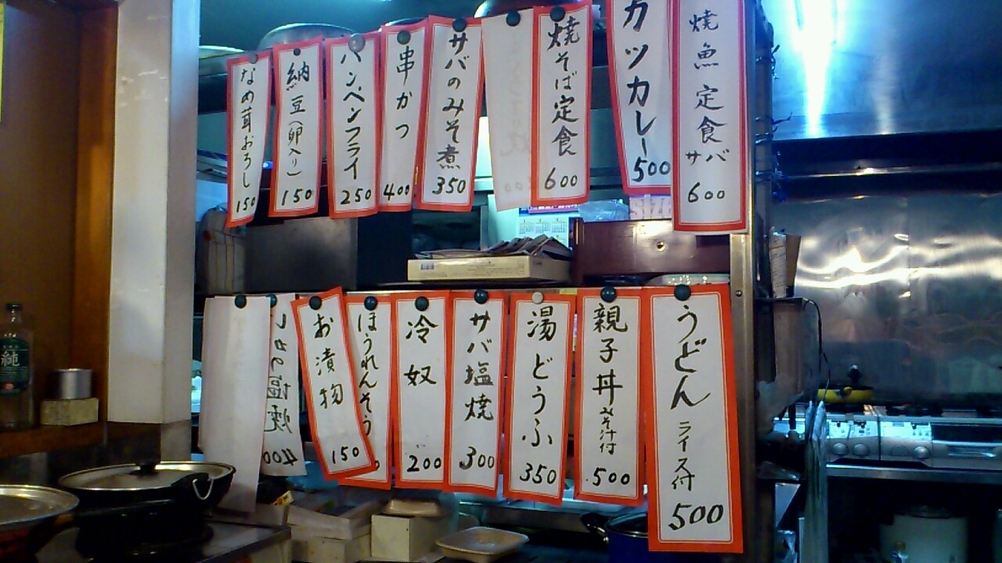 なめ茸おろし
150
納豆(卵入り)
150
ハンペンフライ
250
串かつ
400
サバのみそ煮
350
焼そば定食
600
カツカレー
500
焼魚定食
サバ
600
塩焼
400
お漬物
150
ほうれんそう
冷奴
200
サバ塩焼
300
湯どうふ
350
親子丼
みそ汁付
500
うどん
ライス付
500
純